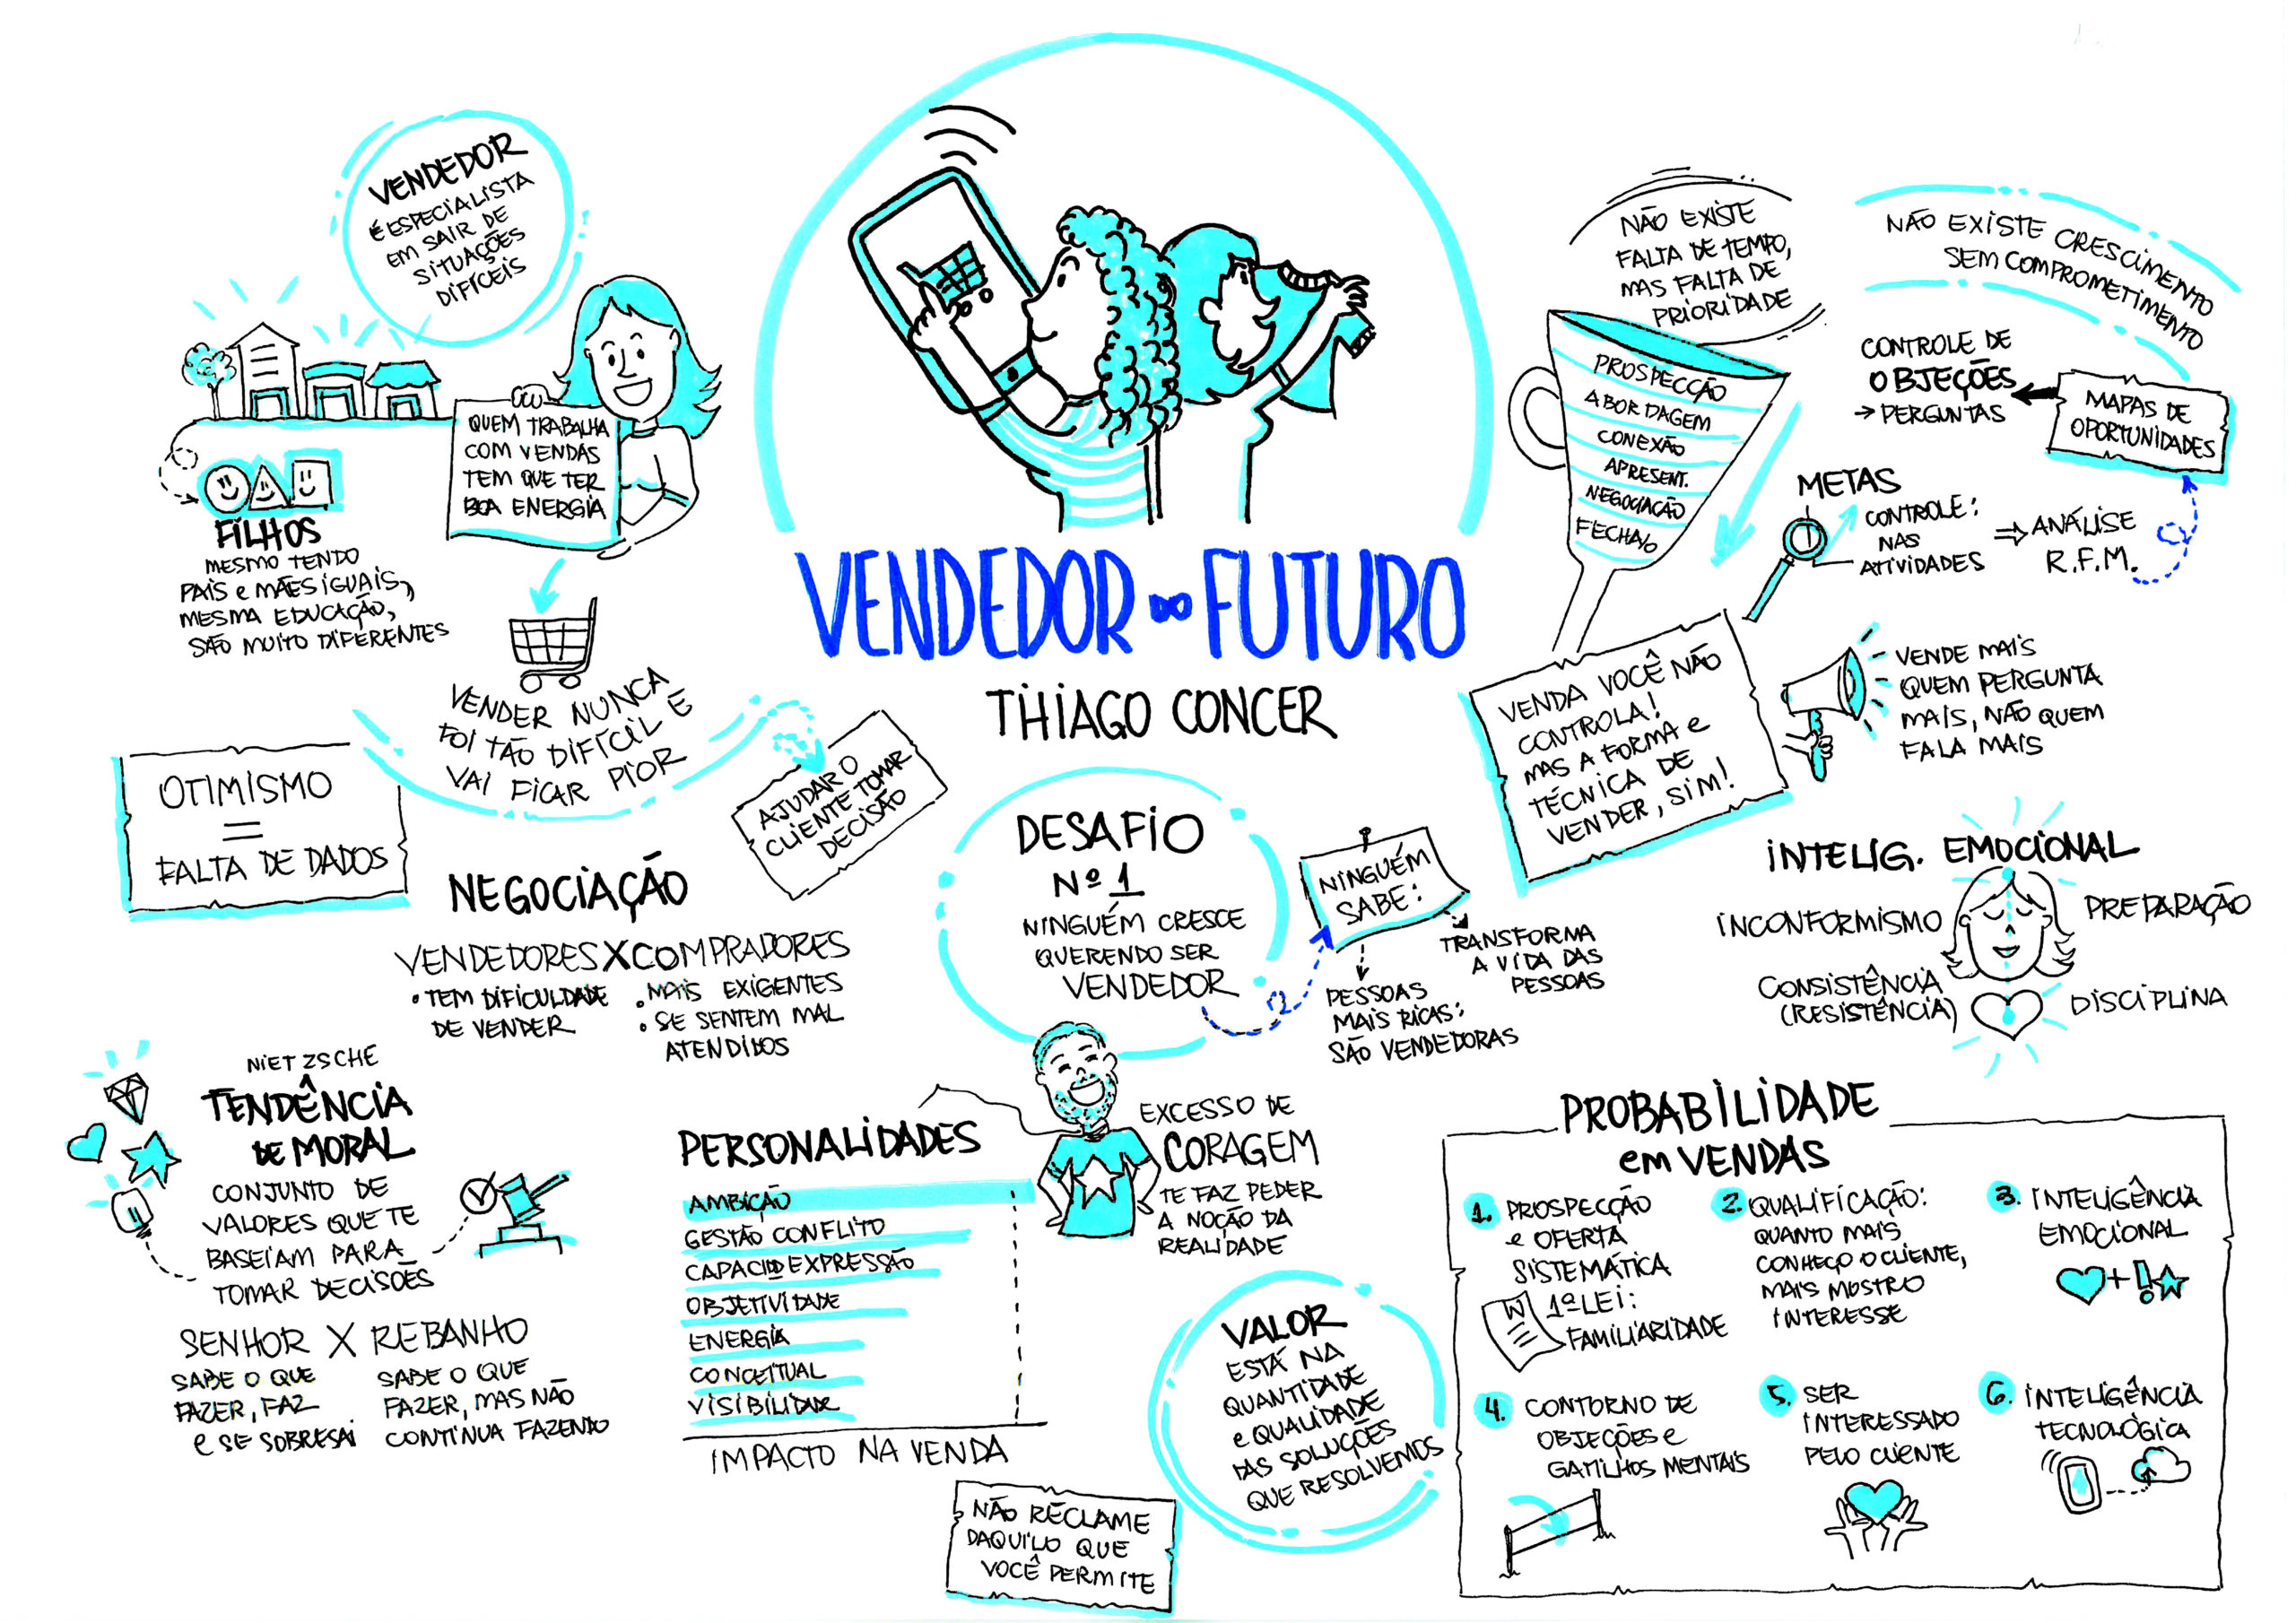 VENDEDOR
É ESPECIALISTA
EM SAIR DE
SITUAÇÕES
DIFÍCEIS
QUEM TRABALHA
COM VENDAS
TEM QUE TER
BOA ENERGIA
FILHOS
MESMO TENDO
PAIS e MÃES IGUAIS,
MESMA EDUCAÇÃO,
SÃO MUITO DIFERENTES
VENDER NUNCA
FOI TÃO DIFÍCIL E
VAI FICAR PIOR
AJUDAR O
CLIENTE TOMAR
DECISÃO
OTIMISMO
=
FALTA DE DADOS
VENDEDOR DO FUTURO
THIAGO CONCER
NÃO EXISTE
FALTA DE TEMPO,
MAS FALTA DE
PRIORIDADE
PROSPECÇÃO
ABORDAGEM
CONEXÃO
APRESENT.
NEGOCIAÇÃO
FECHA/o
NÃO EXISTE CRESCIMENTO
SEM COMPROMETIMENTO
CONTROLE DE
OBJEÇÕES
→ PERGUNTAS
MAPAS DE
OPORTUNIDADES
METAS
CONTROLE:
NAS
ATIVIDADES
⇒ ANÁLISE
R.F.M.
VENDA VOCÊ NÃO
CONTROLA!
MAS A FORMA e
TÉCNICA DE
VENDER, SIM!
VENDE MAIS
QUEM PERGUNTA
MAIS, NÃO QUEM
FALA MAIS
NEGOCIAÇÃO
VENDEDORES X COMPRADORES
• TEM DIFICULDADE
DE VENDER
• MAIS EXIGENTES
• SE SENTEM MAL
ATENDIDOS
DESAFIO
Nº 1
NINGUÉM CRESCE
QUERENDO SER
VENDEDOR
NINGUÉM
SABE:
TRANSFORMA
A VIDA DAS
PESSOAS
PESSOAS
MAIS RICAS:
SÃO VENDEDORAS
INTELIG. EMOCIONAL
INCONFORMISMO
PREPARAÇÃO
CONSISTÊNCIA
(RESISTÊNCIA)
DISCIPLINA
NIETZSCHE
TENDÊNCIA
DE MORAL
CONJUNTO DE
VALORES QUE TE
BASEIAM PARA
TOMAR DECISÕES
SENHOR X REBANHO
SABE O QUE
FAZER, FAZ
e SE SOBRESAI
SABE O QUE
FAZER, MAS NÃO
CONTINUA FAZENDO
PERSONALIDADES
AMBIÇÃO
GESTÃO CONFLITO
CAPACID EXPRESSÃO
OBJETIVIDADE
ENERGIA
CONCEITUAL
VISIBILIDADE
IMPACTO NA VENDA
EXCESSO DE
CORAGEM
TE FAZ PEDER
A NOÇÃO DA
REALIDADE
VALOR
ESTÁ NA
QUANTIDADE
e QUALIDADE
DAS SOLUÇÕES
QUE RESOLVEMOS
NÃO RECLAME
DAQUILO QUE
VOCÊ PERMITE
PROBABILIDADE
em VENDAS
1. PROSPECÇÃO
e OFERTA
SISTEMÁTICA
1ª LEI:
FAMILIARIDADE
W
2. QUALIFICAÇÃO:
QUANTO MAIS
CONHEÇO O CLIENTE,
MAIS MOSTRO
INTERESSE
3. INTELIGÊNCIA
EMOCIONAL
4. CONTORNO DE
OBJEÇÕES e
GATILHOS MENTAIS
5. SER
INTERESSADO
PELO CLIENTE
6. INTELIGÊNCIA
TECNOLÓGICA